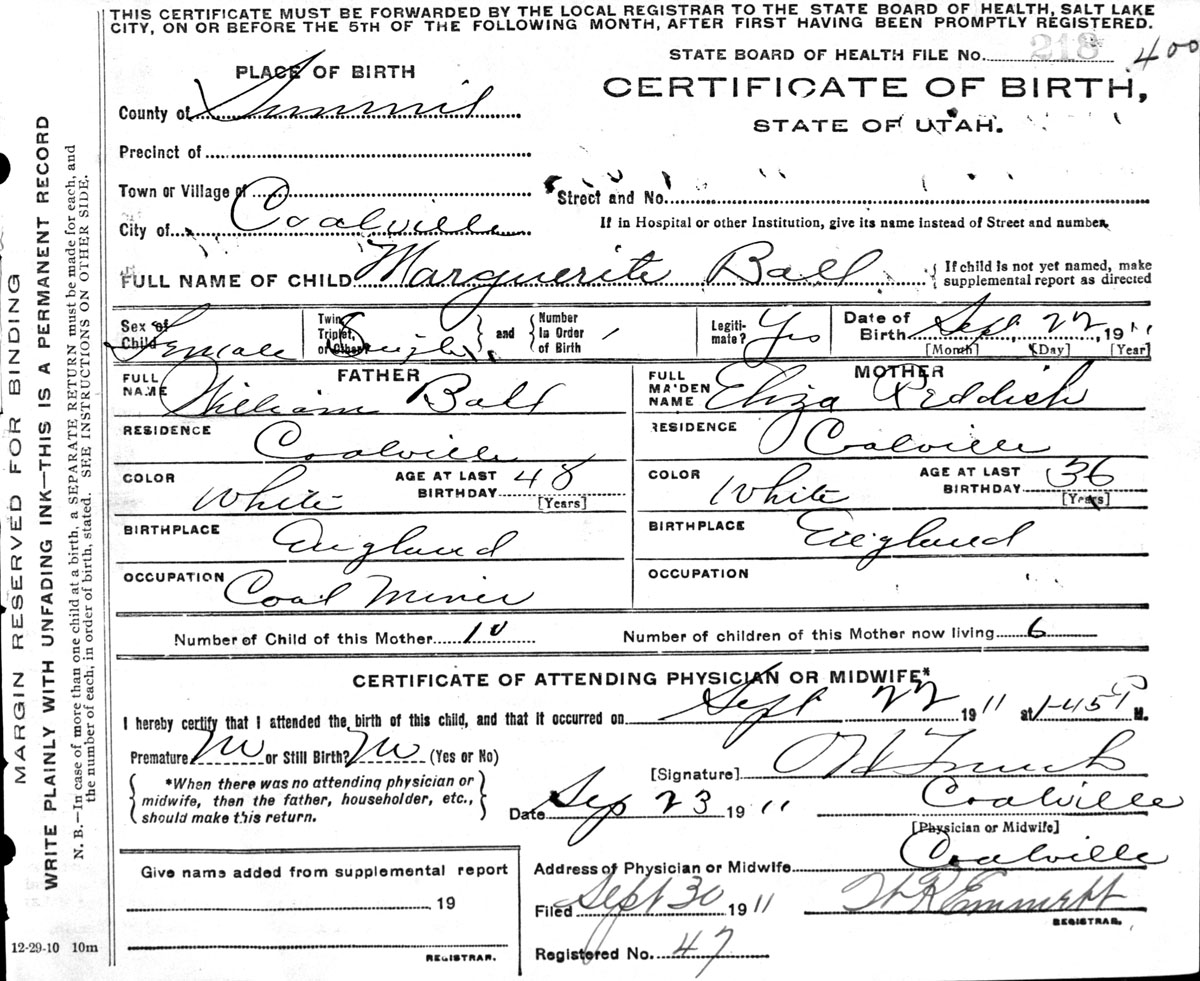 THIS CERTIFICATE MUST BE FORWARDED BY THE LOCAL REGISTRAR TO THE STATE BOARD OF HEALTH, SALT LAKE
CITY, ON OR BEFORE THE 5TH OF THE FOLLOWING MONTH, AFTER FIRST HAVING BEEN PROMPTLY REGISTERED.
STATE BOARD OF HEALTH FILE No. 218 400
PLACE OF BIRTH
CERTIFICATE OF BIRTH,
STATE OF UTAH.
County of Summit
Precinct of
Town or Village of
Street and No.
City of Coalville
If in Hospital or other Institution, give its name instead of Street and number.
FULL NAME OF CHILD Marguerite Ball { If child is not yet named, make
supplemental report as directed
Sex of Child Female
Twin, Triplet, or Other? Single } and { Number in Order of Birth
Legitimate? Yes
Date of Birth Sept 22, 1911
[Month] [Day] [Year]
FATHER
FULL NAME William Ball
RESIDENCE Coalville
COLOR White AGE AT LAST BIRTHDAY 48 [Years]
BIRTHPLACE England
OCCUPATION Coal Miner
MOTHER
FULL MAIDEN NAME Eliza Reddish
RESIDENCE Coalville
COLOR White AGE AT LAST BIRTHDAY 36 [Years]
BIRTHPLACE England
OCCUPATION
Number of Child of this Mother 10 Number of children of this Mother now living 6
CERTIFICATE OF ATTENDING PHYSICIAN OR MIDWIFE*
I hereby certify that I attended the birth of this child, and that it occurred on Sept 22 1911 at 1-45 P M.
Premature No or Still Birth? No (Yes or No)
[Signature]
{ *When there was no attending physician or
midwife, then the father, householder, etc.,
should make this return. }
Date Sep 23 1911 Coalville
[Physician or Midwife]
Address of Physician or Midwife Coalville
Give name added from supplemental report
19
REGISTRAR.
Filed Sept 30 1911 Emmett
REGISTRAR.
Registered No. 47
12-29-10 10m
MARGIN RESERVED FOR BINDING
WRITE PLAINLY WITH UNFADING INK—THIS IS A PERMANENT RECORD
N. B.—In case of more than one child at a birth, a SEPARATE RETURN must be made for each, and
the number of each, in order of birth, stated. SEE INSTRUCTIONS ON OTHER SIDE.